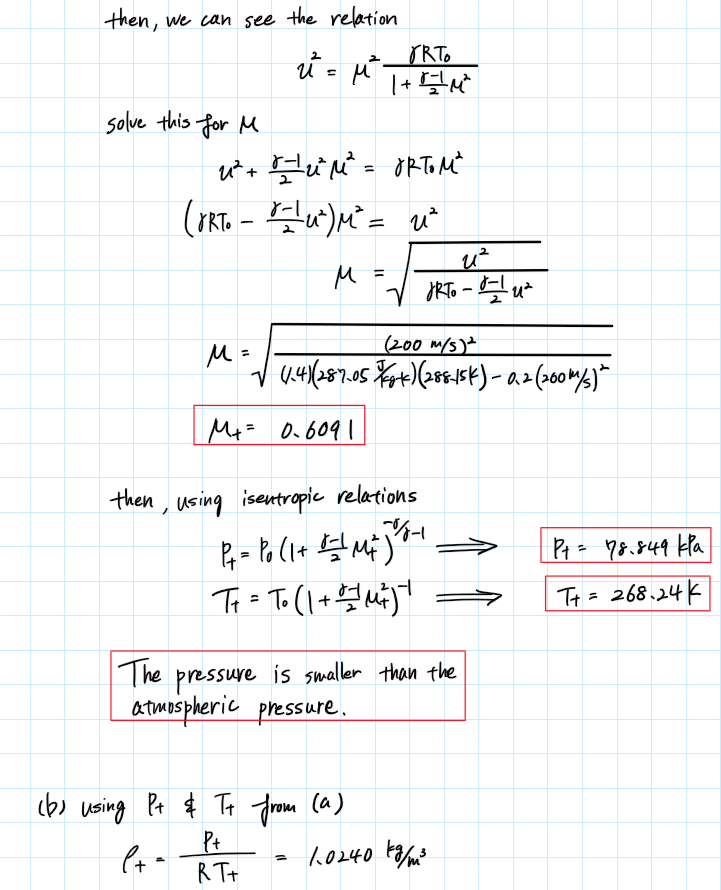 then, we can see the relation
u² = M² γRT₀ / (1 + (γ-1)/2 M²)
solve this for M
u² + (γ-1)/2 u² M² = γRT₀ M²
(γRT₀ - (γ-1)/2 u²) M² = u²
M = √(u² / (γRT₀ - (γ-1)/2 u²))
M = √((200 m/s)² / ((1.4)(287.05 J/kg·K)(288.15K) - 0.2(200 m/s)²))
M_t = 0.6091
then, using isentropic relations
P_t = P₀(1 + (γ-1)/2 M_t²)^(-γ/γ-1) ⟹ P_t = 78.849 kPa
T_t = T₀(1 + (γ-1)/2 M_t²)^-1 ⟹ T_t = 268.24 K
The pressure is smaller than the
atmospheric pressure.
(b) using P_t & T_t from (a)
ρ_t = P_t / RT_t = 1.0240 kg/m³